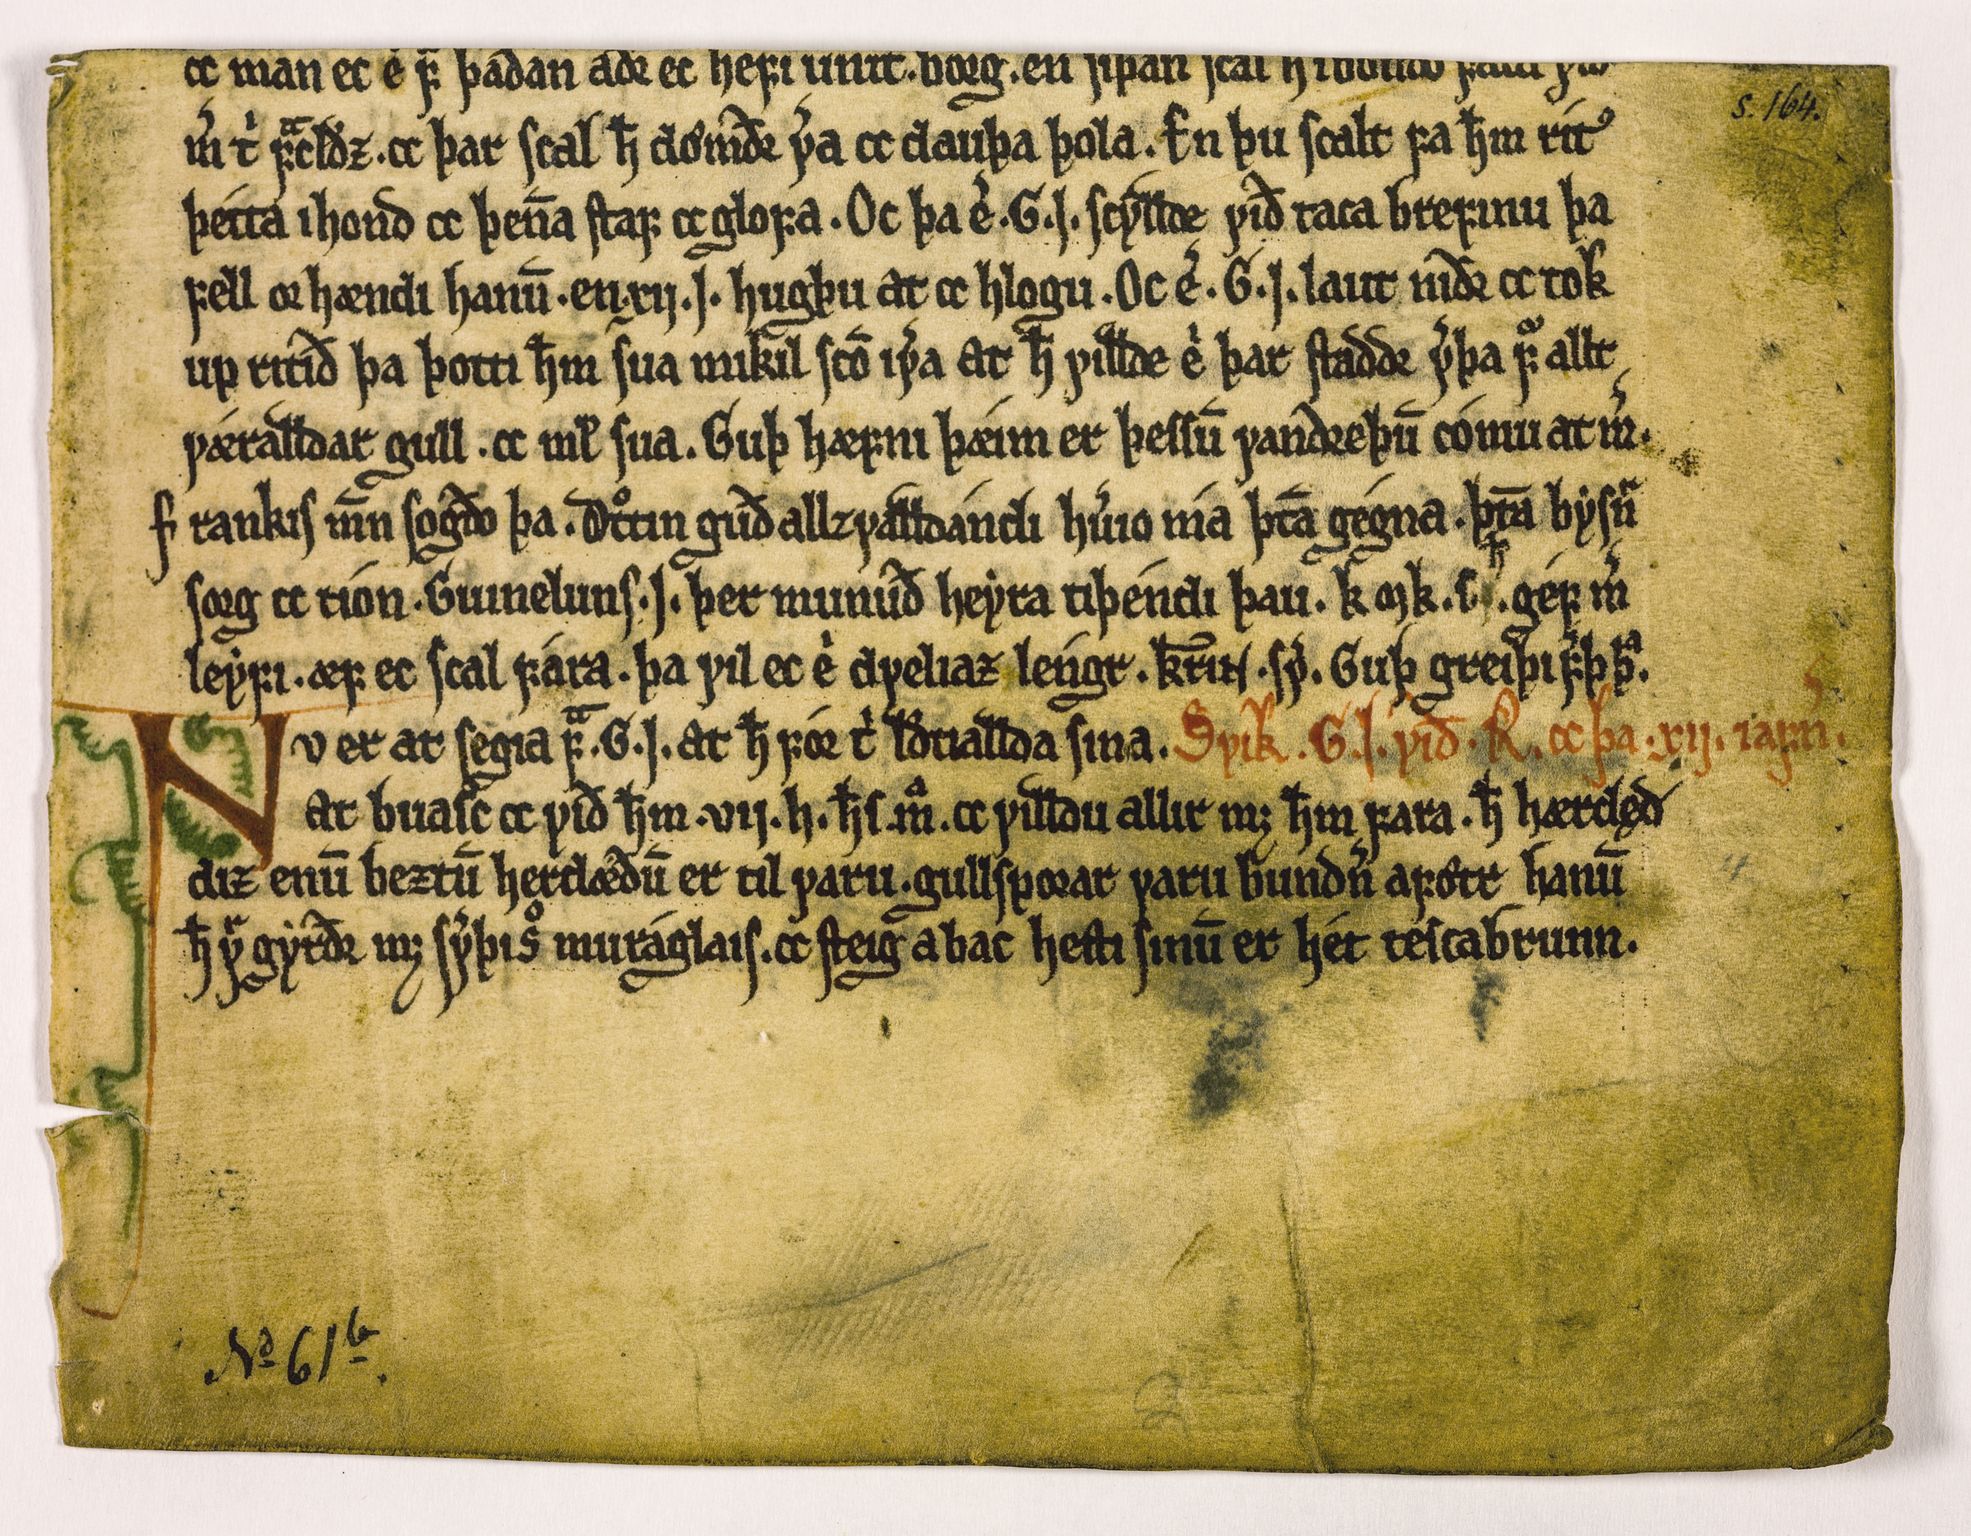 oc man ec ė ꝼ̄ þáðan aðr ec hefi unit borg en siþan scal h
s. 164.
m̄ t̓ ꝼᵃcldz. oc þar scal h̄ dom̄ðe ꝩ̓a oc dauþa þola. En þu scalt ꝼa h̄m rit
þetta i hond oc þen̄a staꝼ oc gloꝼa. Oc þa ė̓. G. J. scyllde ꝩið taca breꝼinu þa
ꝼell or hændi hanū. en. xij. J. hugþu at oc hlogu. Oc ė̓. G. J. laut niðr oc tok
up ritið þa þotti h̄m sua mikil scō iꝩ̓a at h̄ ꝩillde ė̓ þar staðde ꝩ̓þa ꝼ̊ allt
ꝩæralldar gull. oc ml̓ sua. Guþ hæꝼni þæim er þessū ꝩandreþū comu at m̓.
ꝼrankis m̄n sogðo þa. Dꝛottin guð allzꝩalldandi hu̓io má þt̄a gegna. þt̄a bysn̄
sorg oc tion. Guineluns. J. þer munuð heyra tiþendi þau. k. geꝼ m̓
leyꝼi. æꝼ ec scal ꝼára. þa ꝩil ec ė̓ dꝩeliaz lengr. sꝩ̓. Guþ greiþi ꝼ̓
Nv er at segia ꝼᵃ. G. J. at h̄ ꝼór t̓ l̄dtiallda sina. Dꝩik. G. J. ꝩið. K. oc þa. xij. iaꝼn̓.
at buasc oc ꝩið h̄m. vij. h. h̄s. m̊. oc ꝩilldu allir mꝫ h̄m ꝼara. h̄ hærclęð
diz enū beztū herclæðū er til ꝩaru. gullsporar ꝩaru bundn̓ a ꝼótr hanū
h̄ ꝩᵃ gyrðr mꝫ sꝩ̓þi s̊ muráglais. oc steig a bac hesti sinū er hét tescabrunn.
4
No 61b.
2